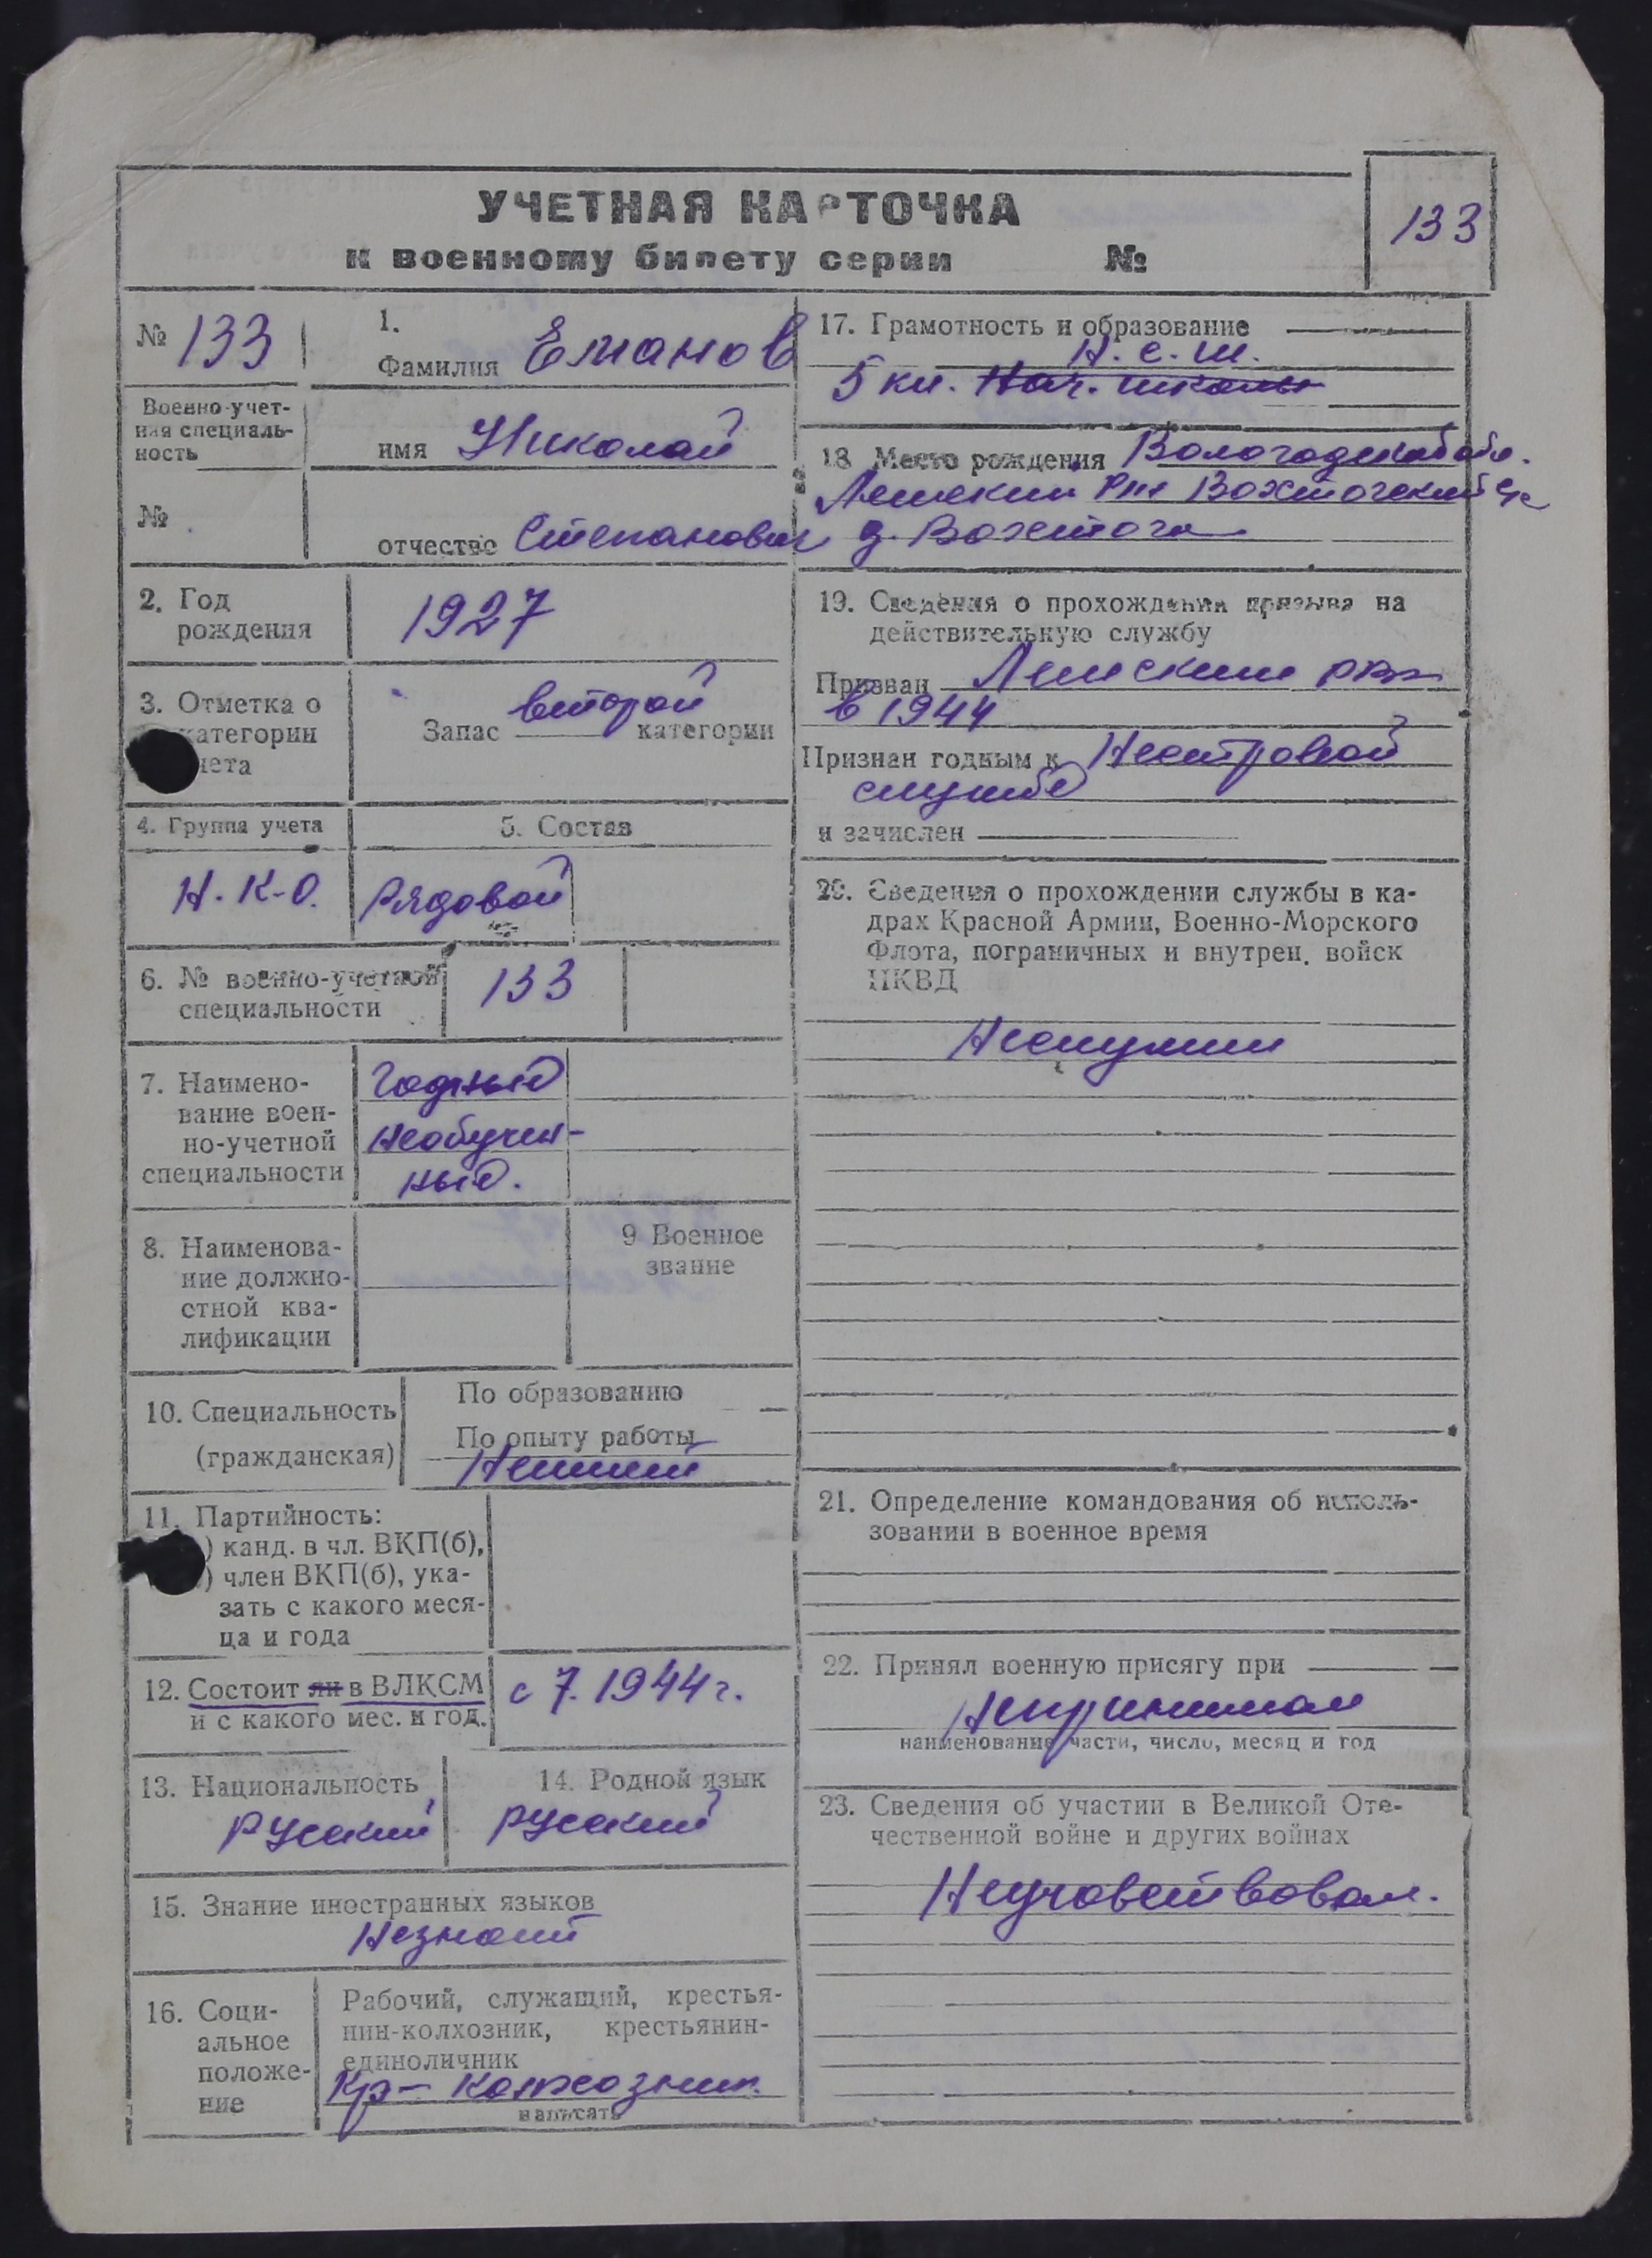 УЧЕТНАЯ КАРТОЧКА
к военному билету серии №
133
№ 133
1.
Фамилия Еманов
Военно-учет-
ная специаль-
ность
имя Николай
№
отчество Степанович
2. Год
рождения
1927
3. Отметка о
категории
чета
Запас второй категории
4. Группа учета
5. Состав
Н. К-О.
Рядовой
6. № военно-учетной
специальности
133
7. Наимено-
вание воен-
но-учетной
специальности
Годный
Необучен-
ный.
8. Наименова-
ние должно-
стной ква-
лификации
9 Военное
звание
10. Специальность
(гражданская)
По образованию
По опыту работы
Неимеет
11. Партийность:
) канд. в чл. ВКП(б),
) член ВКП(б), ука-
зать с какого меся-
ца и года
12. Состоит ли в ВЛКСМ
и с какого мес. и год.
с 7. 1944 г.
13. Национальность
Русский
14. Родной язык
русский
15. Знание иностранных языков
Незнает
16. Соци-
альное
положе-
ние
Рабочий, служащий, крестья-
нин-колхозник, крестьянин-
единоличник
Кр- колхозник
написать
17. Грамотность и образование
Н. с. ш.
5 кл. Нач. школы
18 Место рождения Вологодской обл.
Лежский Р-н Вохтогский с/с
д. Вохтога
19. Сведения о прохождении призыва на
действительную службу
Призван Лежским РВК
в 1944
Признан годным к Нестроевой
службе
и зачислен
20. Сведения о прохождении службы в ка-
драх Красной Армии, Военно-Морского
Флота, пограничных и внутрен. войск
НКВД
Неслужил
21. Определение командования об исполь-
зовании в военное время
22. Принял военную присягу при
Непринимал
наименование части, число, месяц и год
23. Сведения об участии в Великой Оте-
чественной войне и других войнах
Неучавствовал.